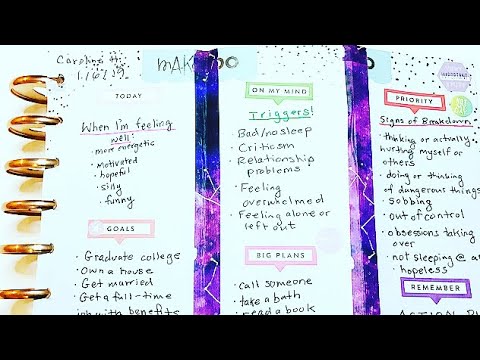 Caroline H.
1/6/19
MAK
DO
TODAY
When I'm feeling
well:
• more energetic
• Motivated
• hopeful
• silly
• funny
GOALS
• Graduate college
• Own a house
• Get married
• Get a full-time
job with benefits
ON MY MIND
Triggers!
Bad/no sleep
Criticism
Relationship
problems
• Feeling
overwhelmed
• Feeling alone or
left out
BIG PLANS
• call someone
• take a bath
• read a book
PRIORITY
Signs of Breakdown
• thinking or actually
hurting myself or
others
• doing or thinking
of dangerous things
• Sobbing
• out of control
• obsessions taking
over
• not sleeping @ a
• hopeless
REMEMBER
ACTION PL